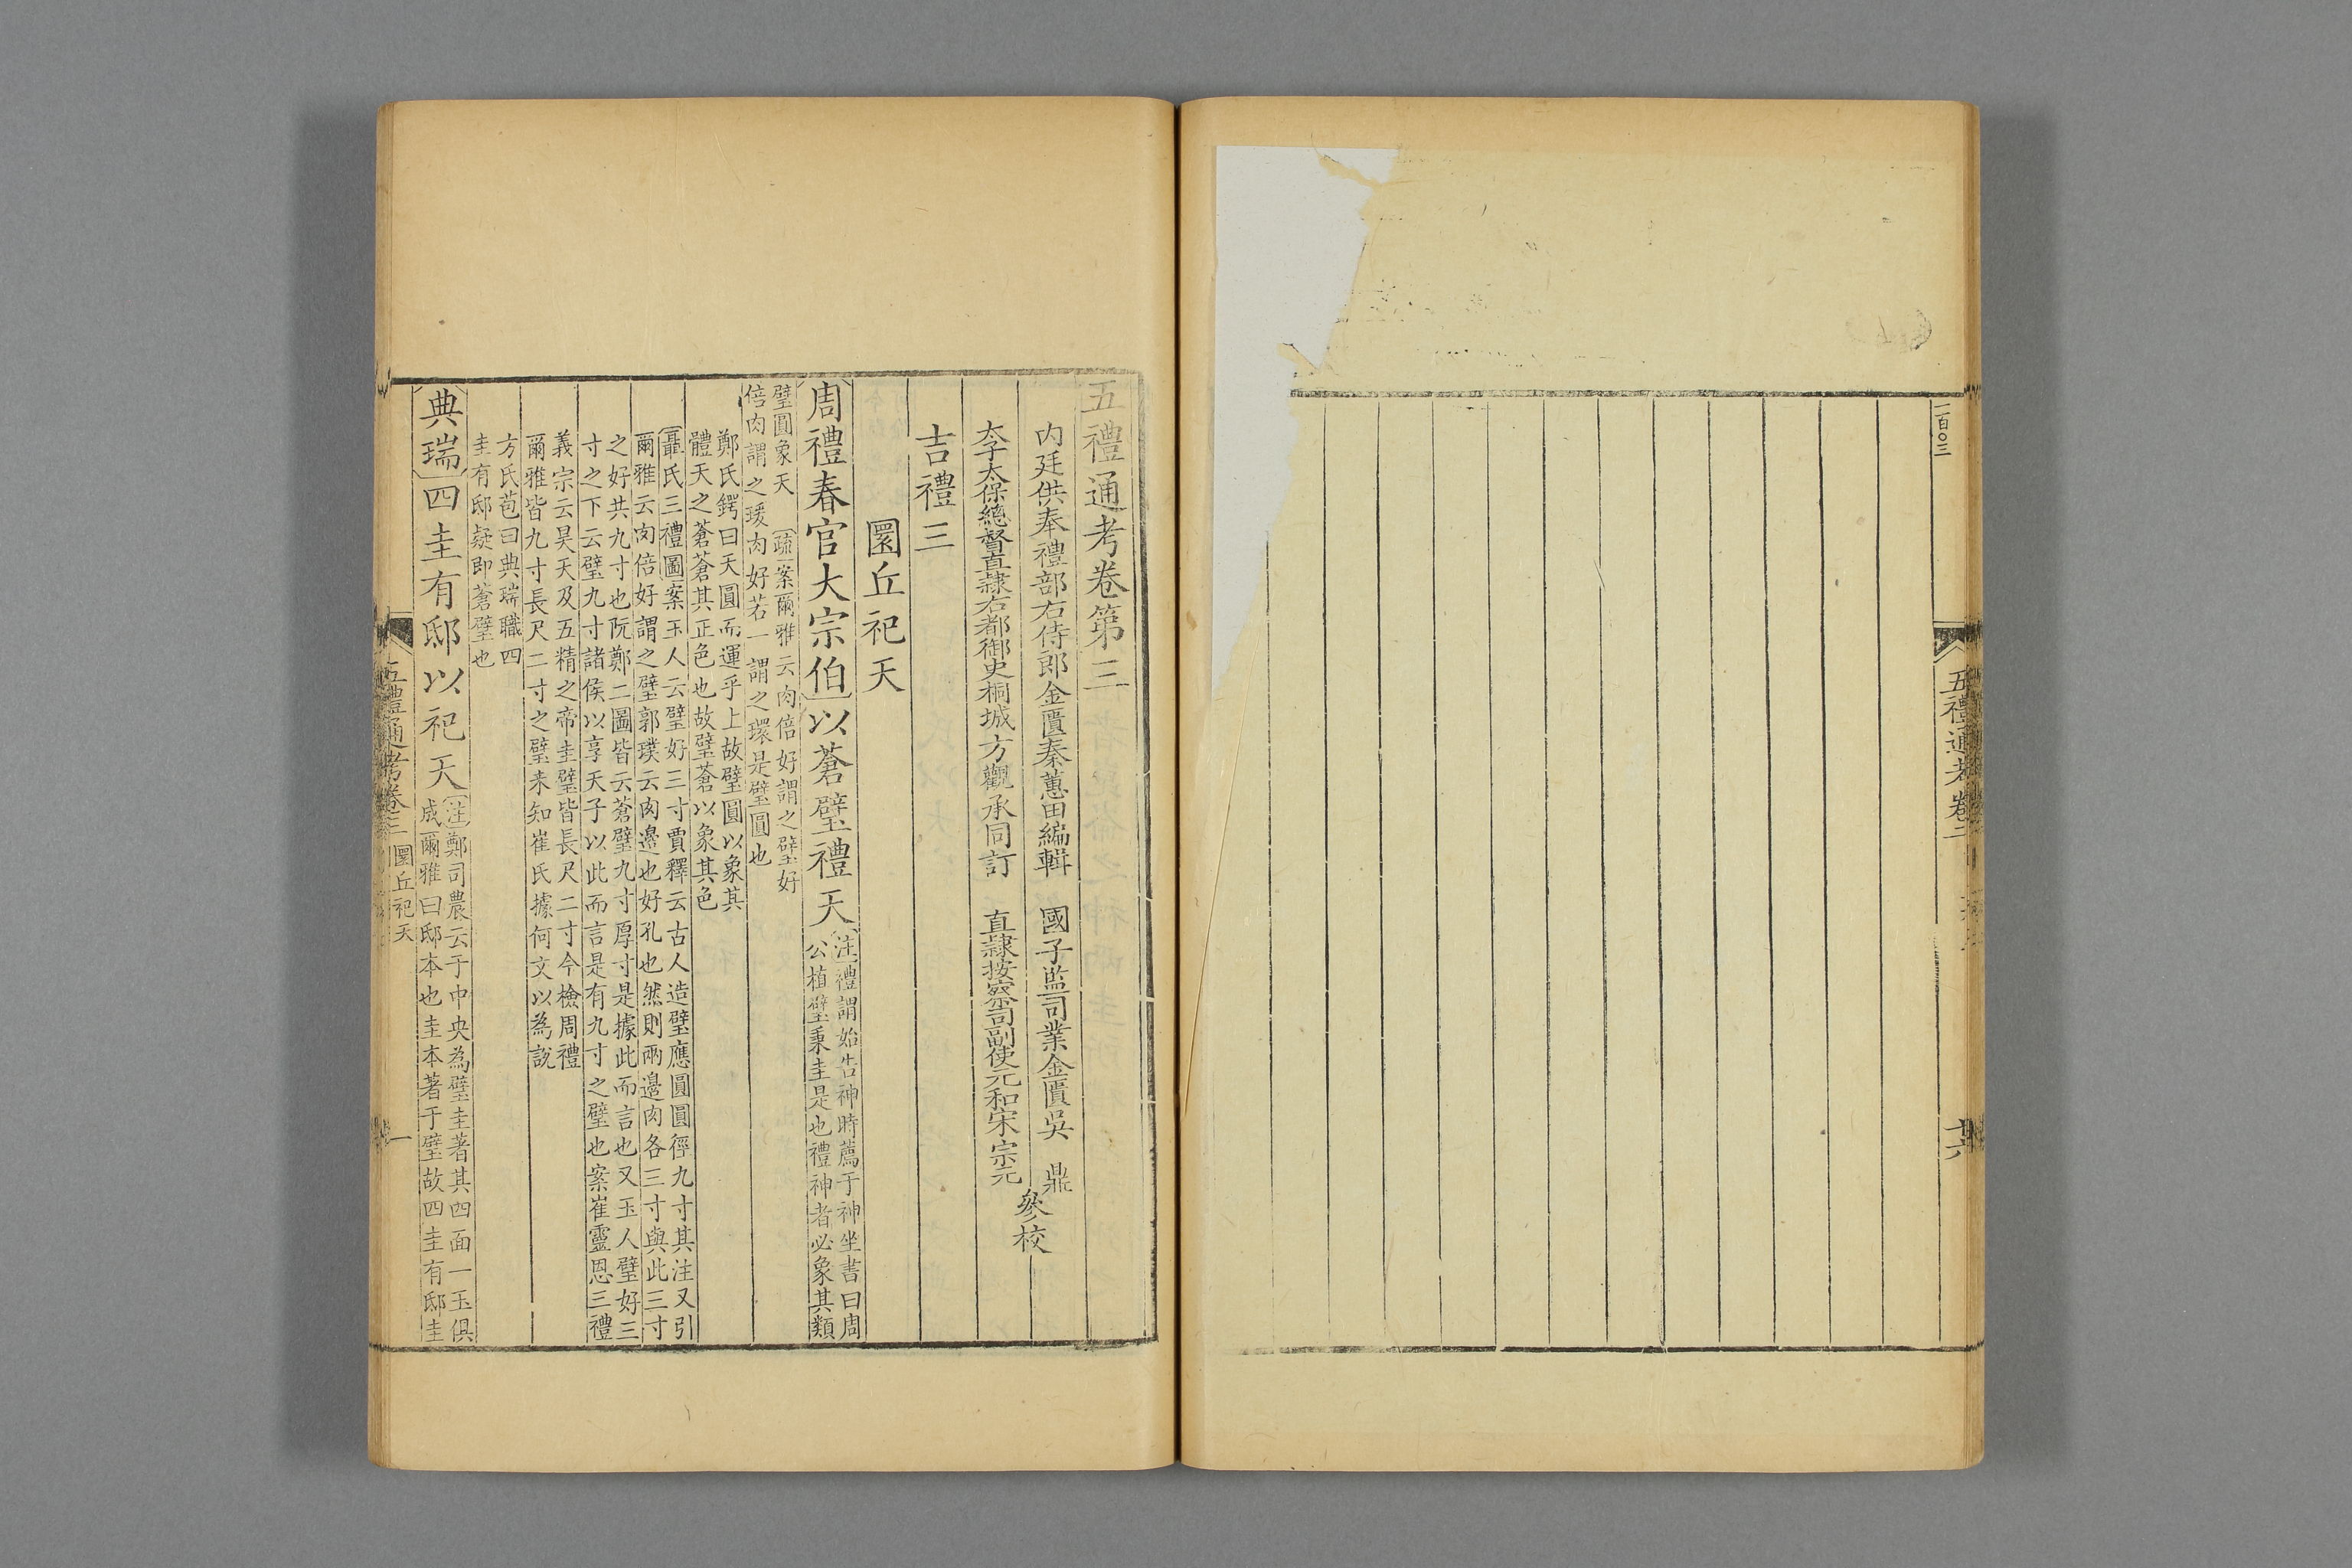 一百〇三
五禮通考卷二
五禮通考卷第三
內廷供奉禮部右侍郎金匱秦蕙田編輯 國子監司業金匱吳 鼎
太子太保總督直隸右都御史桐城方觀承同訂 直隸按察司副使元和宋宗元
參校
吉禮三
圜丘祀天
周禮春官大宗伯以蒼璧禮天
注禮謂始告神時薦于神坐書曰周
公植璧秉圭是也禮神者必象其類
璧圓象天 疏案爾雅云肉倍好謂之璧好
倍肉謂之瑗肉好若一謂之環是璧圓也
鄭氏鍔曰天圓而運乎上故璧圓以象其
體天之蒼蒼其正色也故璧蒼以象其色
聶氏三禮圖案玉人云璧好三寸賈釋云古人造璧應圓圓徑九寸其注又引
爾雅云肉倍好謂之璧郭璞云肉邊也好孔也然則兩邊肉各三寸與此三寸
之好共九寸也阮鄭二圖皆云蒼璧九寸厚寸是據此而言也又玉人璧好三
寸之下云璧九寸諸侯以享天子以此而言是有九寸之璧也案崔靈恩三禮
義宗云昊天及五精之帝圭璧皆長尺二寸今檢周禮
爾雅皆九寸長尺二寸之璧未知崔氏據何文以為說
方氏苞曰典瑞職四
圭有邸疑即蒼璧也
典瑞四圭有邸以祀天
注鄭司農云于中央為璧圭著其四面一玉俱
成爾雅曰邸本也圭本著于璧故四圭有邸圭
五禮通考卷三 圜丘祀天 一